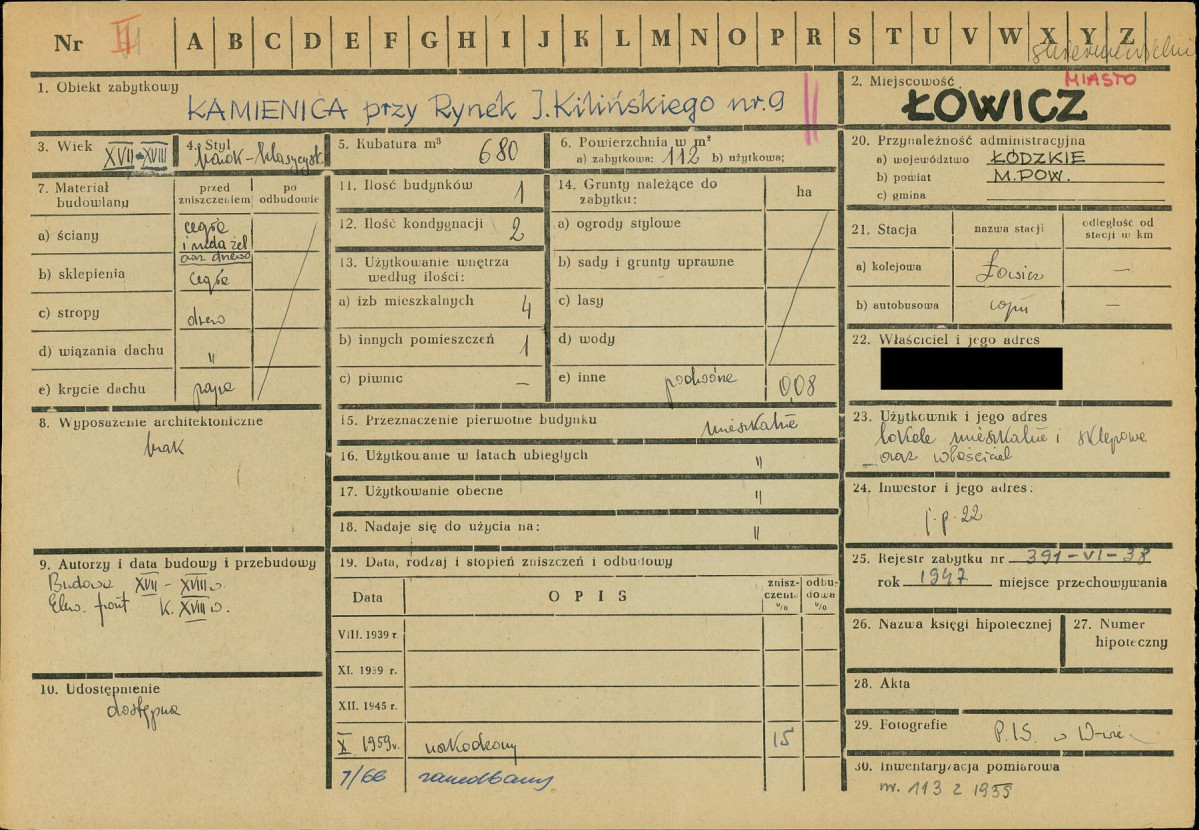 Nr II
A B C D E F G H I J K L M N O P R S T U V W X Y Z
1. Obiekt zabytkowy
KAMIENICA przy Rynek J. Kilińskiego nr. 9
2. Miejscowość MIASTO
ŁOWICZ
3. Wiek XVII-XVIII
4. Styl barok-klasycyst
5. Kubatura m³ 680
6. Powierzchnia w m²
a) zabytkowa: 112 b) użytkowa;
7. Materiał budowlany
przed zniszczeniem
po odbudowie
a) ściany cegła
oraz drewno
b) sklepienia cegła
c) stropy drewno
d) wiązania dachu "
e) krycie dachu papa
8. Wyposażenie architektoniczne
brak
9. Autorzy i data budowy i przebudowy
Budowa XVII - XVIII w
Elew. front K. XVIII w.
10. Udostępnienie
dostępna
11. Ilość budynków 1
12. Ilość kondygnacji 2
13. Użytkowanie wnętrza według ilości:
a) izb mieszkalnych 4
b) innych pomieszczeń 1
c) piwnic –
14. Grunty należące do zabytku: ha
a) ogrody stylowe
b) sady i grunty uprawne
c) lasy
d) wody
e) inne podwórze 0,08
15. Przeznaczenie pierwotne budynku mieszkalne
16. Użytkowanie w latach ubiegłych "
17. Użytkowanie obecne "
18. Nadaje się do użycia na: "
19. Data, rodzaj i stopień zniszczeń i odbudowy
Data OPIS zniszczenie % odbudowa %
VIII. 1939 r.
XI. 1939 r.
XII. 1945 r.
X 1959 r. uszkodzony 15
7/66 zaniedbany
20. Przynależność administracyjna
a) województwo ŁÓDZKIE
b) powiat M. POW.
c) gmina
21. Stacja nazwa stacji odległość od stacji w km
a) kolejowa Łowicz –
b) autobusowa –
22. Właściciel i jego adres
23. Użytkownik i jego adres
lokale mieszkalne i sklepowe
oraz właściciel
24. Inwestor i jego adres:
j. p. 22
25. Rejestr zabytku nr 391-VI-38
rok 1947 miejsce przechowywania
26. Nazwa księgi hipotecznej
27. Numer hipoteczny
28. Akta
29. Fotografie P.I.S. w W-wie
30. Inwentaryzacja pomiarowa
nr. 113 z 1955